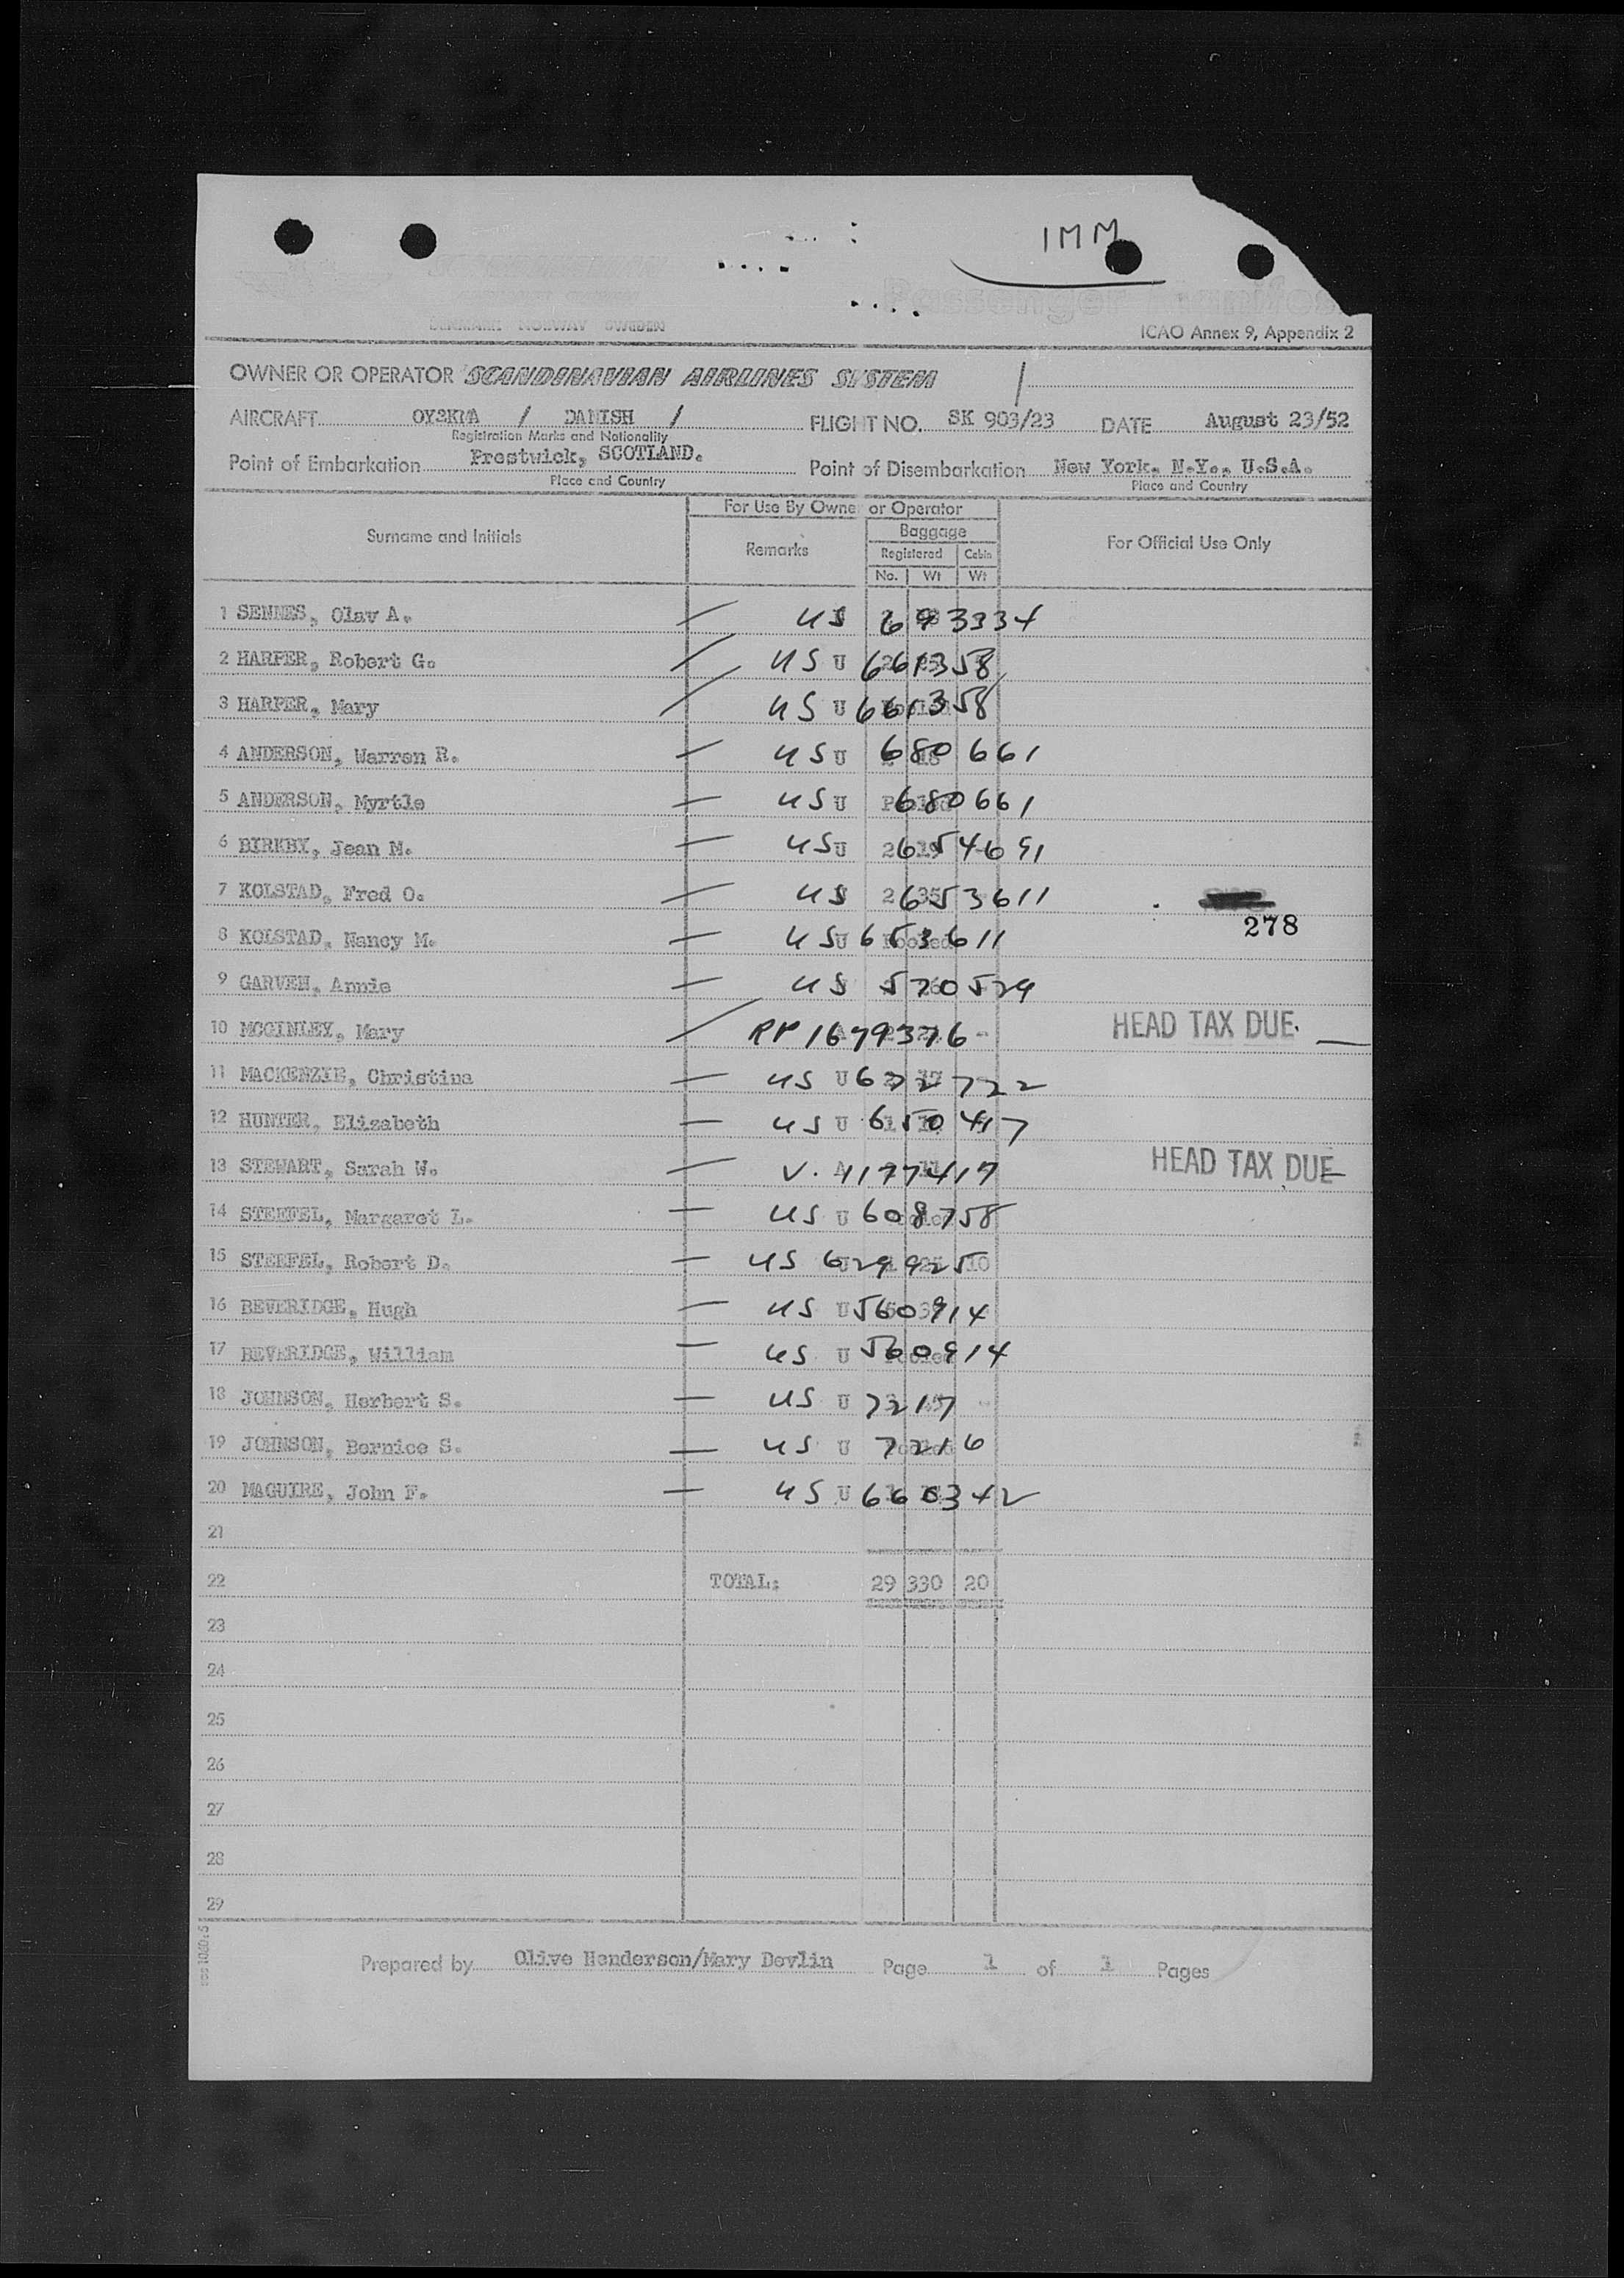 1MM
SCANDINAVIAN
DENMARK NORWAY SWEDEN
Passenger Manifest
ICAO Annex 9, Appendix 2
OWNER OR OPERATOR SCANDINAVIAN AIRLINES SYSTEM
AIRCRAFT / DANISH / FLIGHT NO. SK 903/23 DATE August 23/52
Registration Marks and Nationality
Point of Embarkation Prestwick, SCOTLAND. Point of Disembarkation New York. N.Y., U.S.A.
Place and Country Place and Country
For Use By Owner or Operator
Surname and Initials Remarks Baggage For Official Use Only
Registered Cabin
No. Wt Wt
1 SENNES, Olav A. US 693334
2 HARPER, Robert G. US U 661358
3 HARPER, Mary US U 661358
4 ANDERSON, Warren R. US U 680661
5 ANDERSON, Myrtle US U 680661
6 BIRKBY, Jean M. US U 654691
7 KOLSTAD, Fred O. US 653611
278
8 KOLSTAD, Nancy M. US U 653611
9 GARVEN, Annie US 570529
10 MCGINLEY, Mary PP 1679376 HEAD TAX DUE.
11 MACKENZIE, Christina US U 672722
12 HUNTER, Elizabeth US U 650417
13 STEWART, Sarah W. V. 1177417 HEAD TAX DUE
14 STEEFEL, Margaret L. US U 608758
15 STEEFEL, Robert D. US 629925 10
16 BEVERIDGE, Hugh US U 560914
17 BEVERIDGE, William US U 560914
18 JOHNSON, Herbert S. US U 7217
19 JOHNSON, Bernice S. US U 7216
20 MAGUIRE, John F. US U 660342
21
22 TOTAL: 29 330 20
23
24
25
26
27
28
29
Prepared by Olive Henderson/Mary Devlin Page 1 of 1 Pages